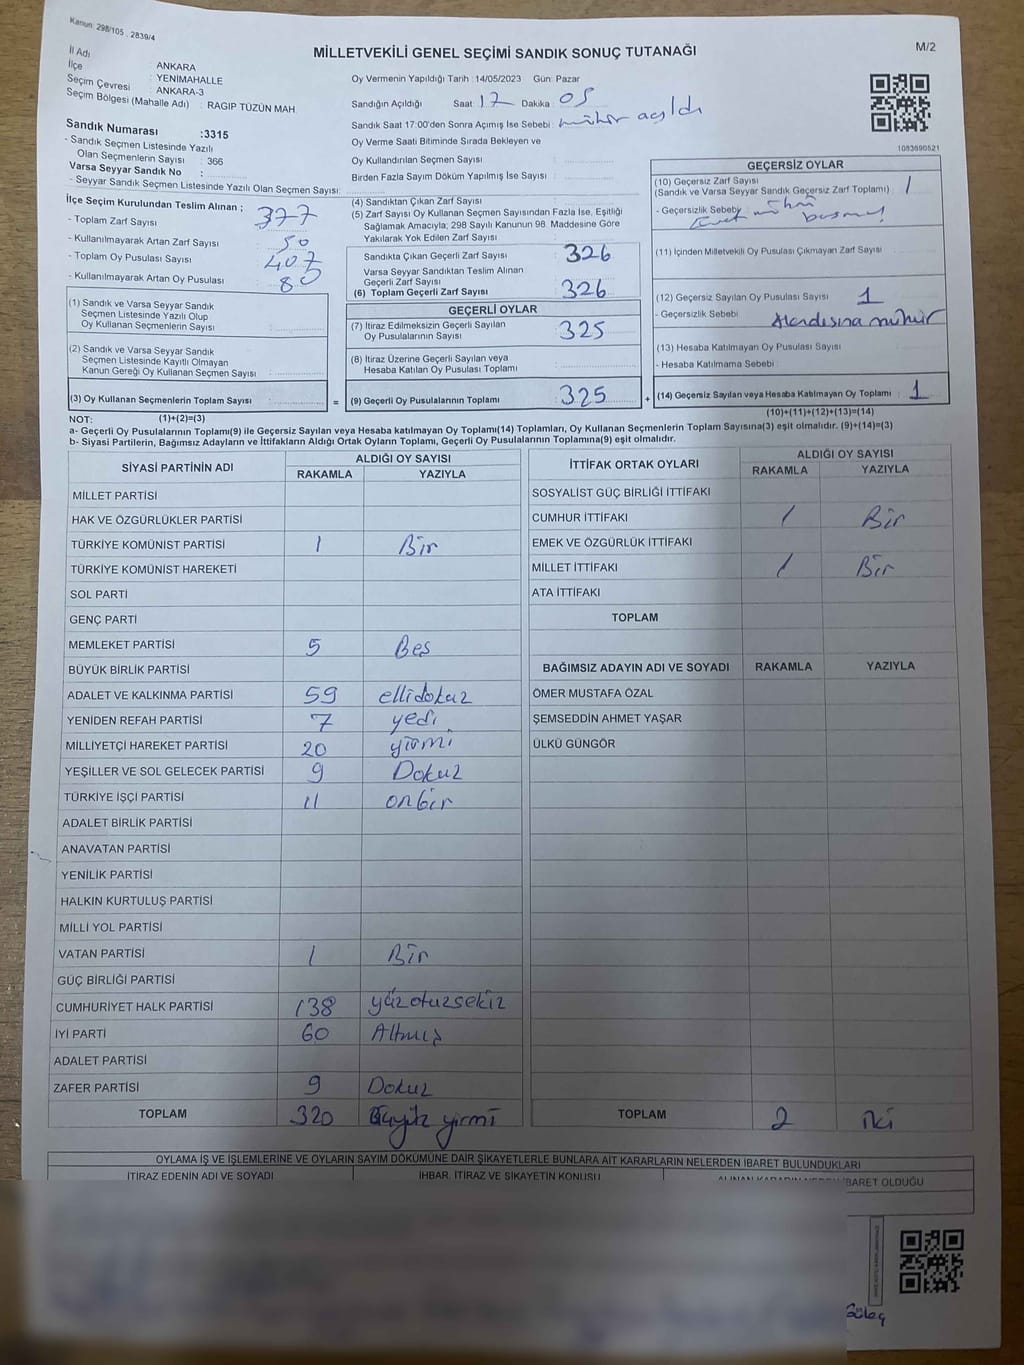 Kanun: 298/105 , 2839/4
M/2
MİLLETVEKİLİ GENEL SEÇİMİ SANDIK SONUÇ TUTANAĞI
İl Adı ANKARA
İlçe : YENİMAHALLE
Seçim Çevresi : ANKARA-3
Seçim Bölgesi (Mahalle Adı) : RAGIP TÜZÜN MAH.
Sandık Numarası :3315
- Sandık Seçmen Listesinde Yazılı
Olan Seçmenlerin Sayısı : 366
Varsa Seyyar Sandık No :
- Seyyar Sandık Seçmen Listesinde Yazılı Olan Seçmen Sayısı:
Oy Vermenin Yapıldığı Tarih : 14/05/2023 Gün: Pazar
Sandığın Açıldığı Saat 17 Dakika 05
Sandık Saat 17:00'den Sonra Açımış İse Sebebi : mühür açıldı
Oy Verme Saati Bitiminde Sırada Bekleyen ve
Oy Kullandırılan Seçmen Sayısı :
Birden Fazla Sayım Döküm Yapılmış İse Sayısı :
1083890521
İlçe Seçim Kurulundan Teslim Alınan ;
- Toplam Zarf Sayısı : 377
- Kullanılmayarak Artan Zarf Sayısı : 50
- Toplam Oy Pusulası Sayısı : 407
- Kullanılmayarak Artan Oy Pusulası : 80
(1) Sandık ve Varsa Seyyar Sandık
Seçmen Listesinde Yazılı Olup
Oy Kullanan Seçmenlerin Sayısı :
(2) Sandık ve Varsa Seyyar Sandık
Seçmen Listesinde Kayıtlı Olmayan
Kanun Gereği Oy Kullanan Seçmen Sayısı :
(3) Oy Kullanan Seçmenlerin Toplam Sayısı :
=
(4) Sandıktan Çıkan Zarf Sayısı :
(5) Zarf Sayısı Oy Kullanan Seçmen Sayısından Fazla İse, Eşitliği
Sağlamak Amacıyla; 298 Sayılı Kanunun 98. Maddesine Göre
Yakılarak Yok Edilen Zarf Sayısı :
Sandıkta Çıkan Geçerli Zarf Sayısı : 326
Varsa Seyyar Sandıktan Teslim Alınan
Geçerli Zarf Sayısı :
(6) Toplam Geçerli Zarf Sayısı : 326
GEÇERLİ OYLAR
(7) İtiraz Edilmeksizin Geçerli Sayılan
Oy Pusulalarının Sayısı : 325
(8) İtiraz Üzerine Geçerli Sayılan veya
Hesaba Katılan Oy Pusulası Toplamı :
(9) Geçerli Oy Pusulalarının Toplamı : 325
+
GEÇERSİZ OYLAR
(10) Geçersiz Zarf Sayısı
(Sandık ve Varsa Seyyar Sandık Geçersiz Zarf Toplamı) : 1
- Geçersizlik Sebebi : Evet mührü basmış
(11) İçinden Milletvekili Oy Pusulası Çıkmayan Zarf Sayısı :
(12) Geçersiz Sayılan Oy Pusulası Sayısı : 1
- Geçersizlik Sebebi : mühür
(13) Hesaba Katılmayan Oy Pusulası Sayısı :
- Hesaba Katılmama Sebebi :
(14) Geçersiz Sayılan veya Hesaba Katılmayan Oy Toplamı : 1
NOT: (1)+(2)=(3)
(10)+(11)+(12)+(13)=(14)
a- Geçerli Oy Pusulalarının Toplamı(9) ile Geçersiz Sayılan veya Hesaba katılmayan Oy Toplamı(14) Toplamları, Oy Kullanan Seçmenlerin Toplam Sayısına(3) eşit olmalıdır. (9)+(14)=(3)
b- Siyasi Partilerin, Bağımsız Adayların ve İttifakların Aldığı Ortak Oyların Toplamı, Geçerli Oy Pusulalarının Toplamına(9) eşit olmalıdır.
SİYASİ PARTİNİN ADI ALDIĞI OY SAYISI
RAKAMLA YAZIYLA
MİLLET PARTİSİ
HAK VE ÖZGÜRLÜKLER PARTİSİ
TÜRKİYE KOMÜNİST PARTİSİ 1 Bir
TÜRKİYE KOMÜNİST HAREKETİ
SOL PARTİ
GENÇ PARTİ
MEMLEKET PARTİSİ 5 Beş
BÜYÜK BİRLİK PARTİSİ
ADALET VE KALKINMA PARTİSİ 59 ellidokuz
YENİDEN REFAH PARTİSİ 7 yedi
MİLLİYETÇİ HAREKET PARTİSİ 20 yirmi
YEŞİLLER VE SOL GELECEK PARTİSİ 9 Dokuz
TÜRKİYE İŞÇİ PARTİSİ 11 onbir
ADALET BİRLİK PARTİSİ
ANAVATAN PARTİSİ
YENİLİK PARTİSİ
HALKIN KURTULUŞ PARTİSİ
MİLLİ YOL PARTİSİ
VATAN PARTİSİ 1 Bir
GÜÇ BİRLİĞİ PARTİSİ
CUMHURİYET HALK PARTİSİ 138 yüzotuzsekiz
İYİ PARTİ 60 Altmış
ADALET PARTİSİ
ZAFER PARTİSİ 9 Dokuz
TOPLAM 320 üçyüz yirmi
İTTİFAK ORTAK OYLARI ALDIĞI OY SAYISI
RAKAMLA YAZIYLA
SOSYALİST GÜÇ BİRLİĞİ İTTİFAKI
CUMHUR İTTİFAKI 1 Bir
EMEK VE ÖZGÜRLÜK İTTİFAKI
MİLLET İTTİFAKI 1 Bir
ATA İTTİFAKI
TOPLAM
BAĞIMSIZ ADAYIN ADI VE SOYADI RAKAMLA YAZIYLA
ÖMER MUSTAFA ÖZAL
ŞEMSEDDİN AHMET YAŞAR
ÜLKÜ GÜNGÖR
TOPLAM 2 iki
OYLAMA İŞ VE İŞLEMLERİNE VE OYLARIN SAYIM DÖKÜMÜNE DAİR ŞİKAYETLERLE BUNLARA AİT KARARLARIN NELERDEN İBARET BULUNDUKLARI
İTİRAZ EDENİN ADI VE SOYADI İHBAR, İTİRAZ VE ŞİKAYETİN KONUSU ALINAN KARARIN NEDEN İBARET OLDUĞU
Güleç